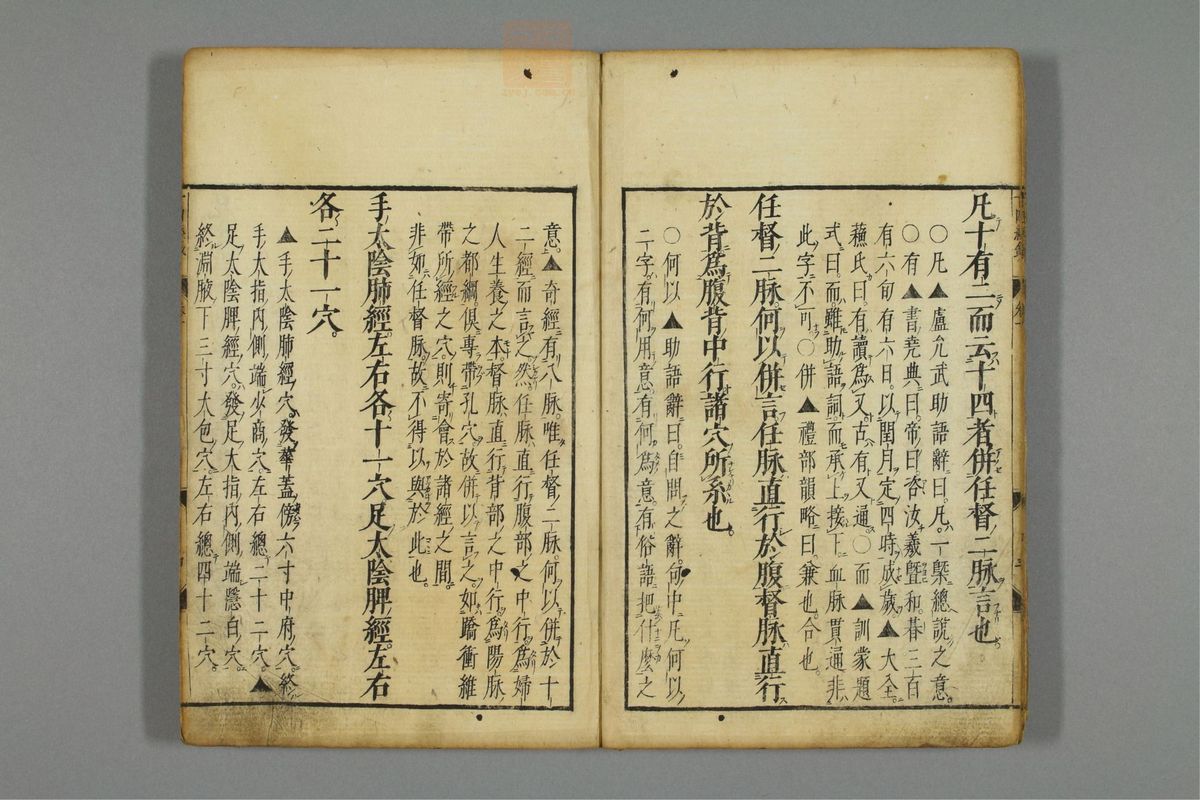 凡十有二而云十四者併任督二脉言也
○凡▲盧允武助語辭曰凡一槩總說之意
○有▲書堯典曰帝曰咨汝羲曁和朞三百
有六旬有六日以閏月定四時成歲▲大全
蘓氏曰有讀爲又古有又通○而▲訓蒙題
式曰而雖助語詞而承上接下血脉貫通非
此字不可○併▲禮部韻略曰兼也合也
任督二脉何以併言任脉直行於腹督脉直行
於背爲腹背中行諸穴所系也
○何以▲助語辭曰自問之辭何中凡何以
二字有何用意有何爲意有俗語把什麼之
意▲奇經有八脉唯任督二脉何以併於十
二經而言之然任脉直行腹部之中行爲婦
人生養之本督脉直行背部之中行爲陽脉
之都綱倶專帶孔穴故併以言之如蹻衝維
帶所經之穴則寄會於諸經之間
非如任督脉故不得以與於此也
手太陰肺經左右各十一穴足太陰脾經左右
各二十一穴
▲手太陰肺經穴發華蓋傍六寸中府穴終
手大指內側端少商穴左右總二十二穴▲
足太陰脾經穴發足大指內側端隱白穴
終淵腋下三寸大包穴左右總四十二穴